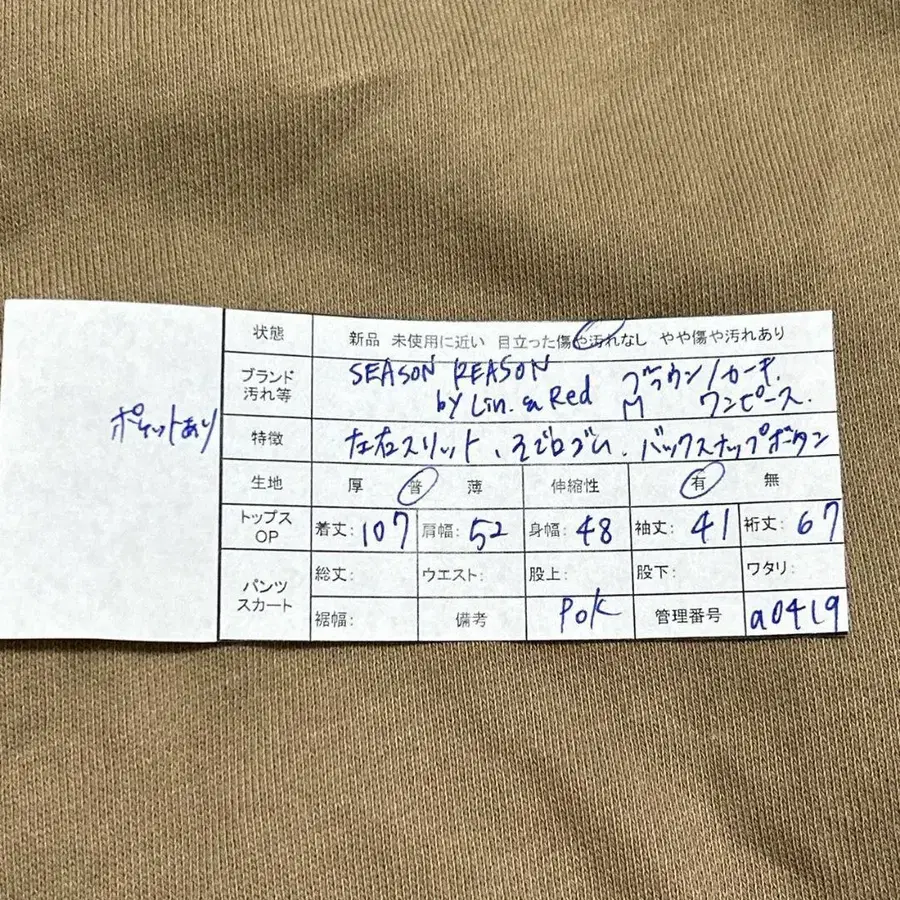 ポケットあり
状態 新品 未使用に近い 目立った傷や汚れなし やや傷や汚れあり
ブランド 汚れ等 SEASON REASON ブラウン/カーキ.
by Lin. & Red M ワンピース.
特徴 左右スリット、そで口ゴム、バックスナップボタン
生地 厚 普 薄 伸縮性 有 無
トップス OP 着丈: 107 肩幅: 52 身幅: 48 袖丈: 41 裄丈: 67
パンツ スカート 総丈: ウエスト: 股上: 股下: ワタリ:
裾幅: 備考 POK 管理番号 a0419